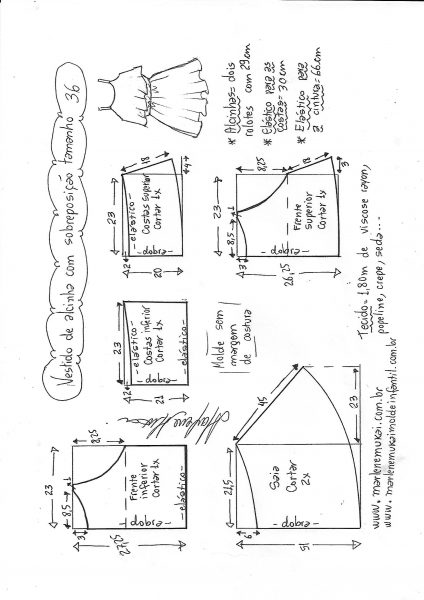 Vestido de alcinha com sobreposição tamanho 36
* Alcinhas= dois
rolotes com 29cm
* Elástico para as
costas= 30cm
* Elástico para
a cintura= 66cm
23
18
4
2
-elástico-
Costas superior
Cortar 1x
-dobra-
20
8,25
18
3
23
1
8,5
Frente
superior
Cortar 1x
-dobra-
2
26,25
23
2
-elástico-
Costas inferior
Cortar 1x
-elástico-
-dobra-
21
Molde sem
margem
de costura
Tecido= 1,80m de viscose rayon,
popeline, crepe, seda...
8,25
23
1
8,5
3
Frente
inferior
Cortar 1x
-elástico-
-dobra-
27,25
45
23
21,5
Saia
Cortar
2x
-dobra-
6
51
www.marlenemukai.com.br
www.marlenemukaimoldeinfantil.com.br